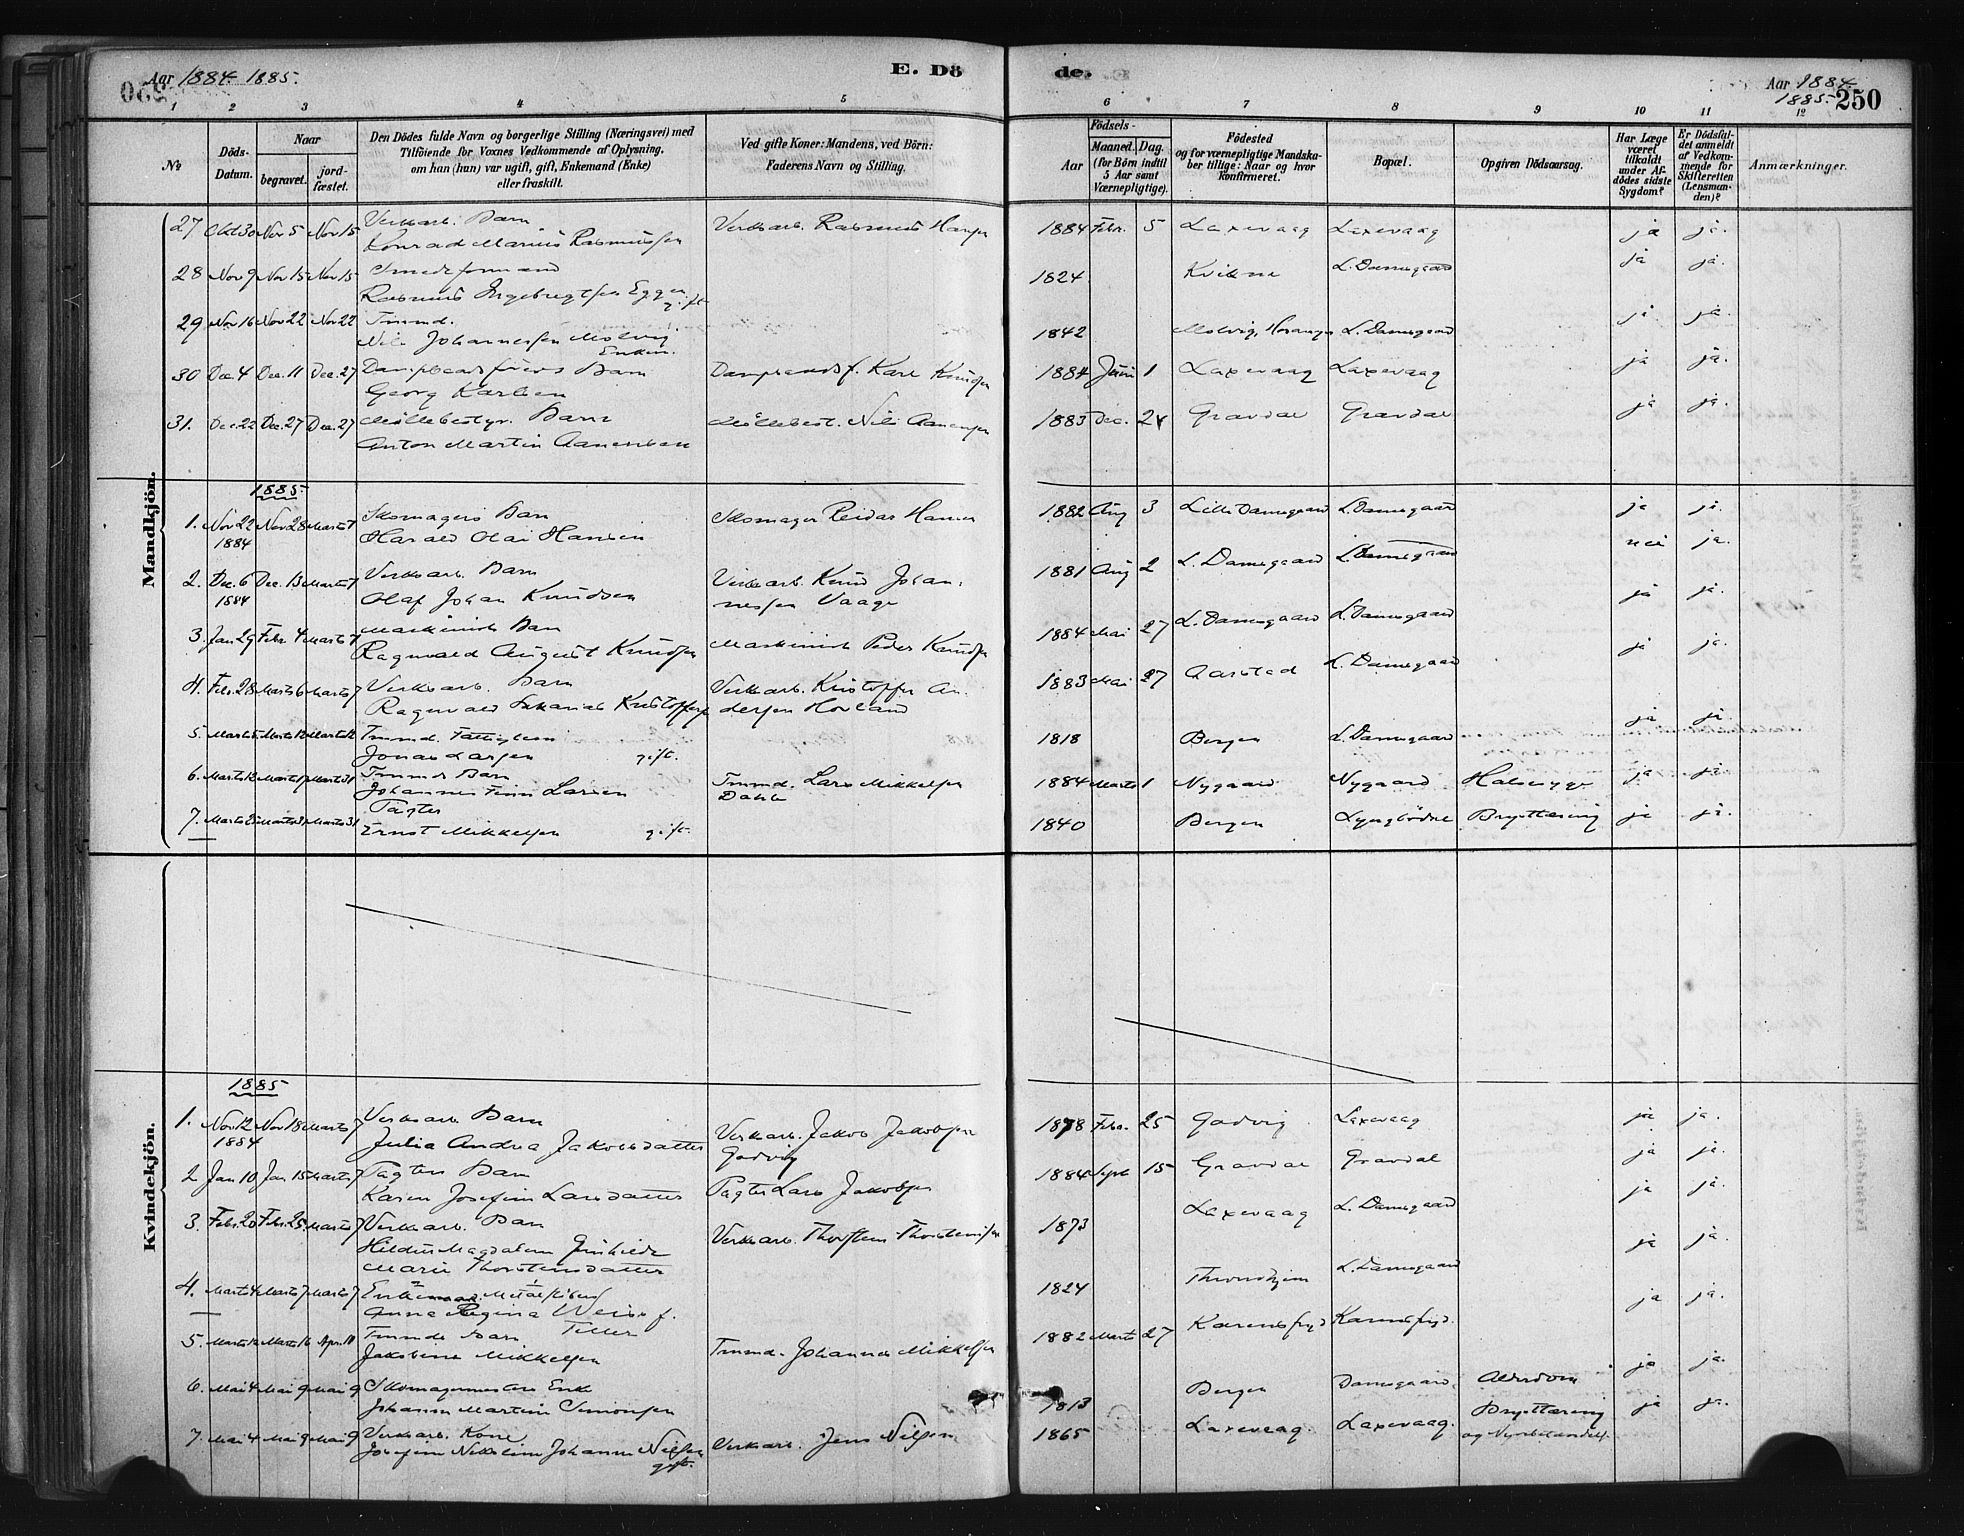 Aar 1884. 1885.
E. Dö
de.
Aar 1884.
1885.
250
1 2 3 4 5 6 7 8 9 10 11 12
No
Döds-Datum.
Naar
begravet.
jord-fæstet.
Den Dödes fulde Navn og borgerlige Stilling (Næringsvei) med
Tilföiende for Voxnes Vedkommende af Oplysning,
om han (hun) var ugift, gift, Enkemand (Enke)
eller fraskilt.
Ved gifte Koner: Mandens, ved Börn:
Faderens Navn og Stilling.
Födsels-
Aar
Maaned. Dag.
(for Börn indtil
5 Aar samt
Værnepligtige).
Födested
og for værnepligtige Mandska-
ber tillige: Naar og hvor
konfirmeret.
Bopæl.
Opgiven Dödsaarsag.
Har Læge
været
tilkaldt
under Af-
dödes sidste
Sygdom?
Er Dödsfal-
det anmeldt
af Vedkom-
mende for
Skifteretten
(Lensman-
den)?
Anmærkninger.
Mandkjön.
27 Okt 30 Nov 5 Nov 15 Verksarb. Barn Verksarb. Rasmus Hansen 1884 Febr. 5 Laxevaag Laxevaag ja ja.
Konrad Marius Rasmussen
28 Nov 9 Nov 15 Nov 15 Smedeformand 1824 Kvikne L. Damsgaard ja ja.
Rasmus Ingebrigtsen Eggen gift
29 Nov 16 Nov 22 Nov 22 Tmmd. 1842 L. Damsgaard ja ja.
Nils Johannessen Molvig
Enkem.
30 Dec. 4 Dec. 11 Dec. 27 Barn Karl Knudsen 1884 Juni 1 Laxevaag Laxevaag ja ja.
Georg Karlsen
31. Dec. 22 Dec. 27 Dec. 27 Möllebestyr. Barn Möllebest. Nils Aanensen 1883 Dec. 24 Gravdal Gravdal ja ja.
Anton Martin Aanensen
1885.
1. Nov 22 Nov 28 Marts 7 Skomagers Barn Skomager Reidar Hansen 1882 Aug 3 Lille Damsgaard L. Damsgaard ja ja.
1884 Harald Olai Hansen
2. Dec. 6 Dec. 13 Marts 7 Verksarb. Barn Verksarb. Knud Johan- 1881 Aug 2 L. Damsgaard L. Damsgaard nei ja.
1884 Olaf Johan Knudsen nessen Vaage
3. Jan 29 Febr 4 Marts 7 Maskinist Barn Maskinist Peder Knudsen 1884 Mai 27 L. Damsgaard L. Damsgaard ja ja.
Ragnvald August Knudsen
4. Feb. 28 Marts 6 Marts 7 Verksarb. Barn Verksarb. Kristoffer An- 1883 Mai 27 Aarstad L. Damsgaard ja ja.
Ragnvald Sakarias Kristoffersen dersen Hovland
5. Marts 5 Marts 12 Marts 12 Tmmd. Fattiglem 1818 Bergen L. Damsgaard ja ja
Jonas Larsen gift.
6. Marts 12 Marts 31 Tmmds Barn Tmmd. Lars Mikkelsen 1884 Marts 1 Nygaard Nygaard Halssyge ja ja.
Johannes Finn Larsen Dahle
7. Marts 31 Marts 31 Pagter 1840 Bergen Lyngbödal Brysttæring ja ja.
Ernst Mikkelsen gift.
Kvindekjön.
1885
1. Nov 12 Nov 18 Marts 7 Verksarb. Barn Verksarb. Jakob Jakobsen 1878 Febr. 25 Godvig Laxevaag ja ja.
1884 Julia Andrea Jakobsdatter Godvig
2 Jan 10 Jan 15 Marts 7 Pagters Barn Pagter Lars Jakobsen 1884 Sept 15 Gravdal Gravdal ja ja.
Karen Josefine Larsdatter
3. Febr. 20 Febr. 25 Marts 7 Verksarb. Barn Verksarb. Thorsten Thorstensen 1873 Laxevaag L. Damsgaard ja ja.
Hildur Magdalena
Marie Thorstensdatter
4. Marts 4 Marts 7 Marts 7 1824 Throndhjem L. Damsgaard ja ja.
Anna Regina Weise f.
Teller
5. Marts 12 Marts 16 Apr. 11 Tmmds Barn Tmmd. Johannes Mikkelsen 1882 Marts 27 Karensfryd Karensfryd. ja ja.
Jakobine Mikkelsen
6. Mai 4 Mai 9 Mai 9 Skomagermesters Enke 1813 Bergen Damsgaard. Alderdom ja ja.
Johanne Martine Simonsen
7. Mai 4 Mai 9 Mai 9 Verksarb. Kone Verksarb. Jens Nilsen 1865 Laxevaag. Laxevaag. Brysttæring ja ja.
Josefine Nikoline Johanne Nilsen og Nyrebetændelse
gift.